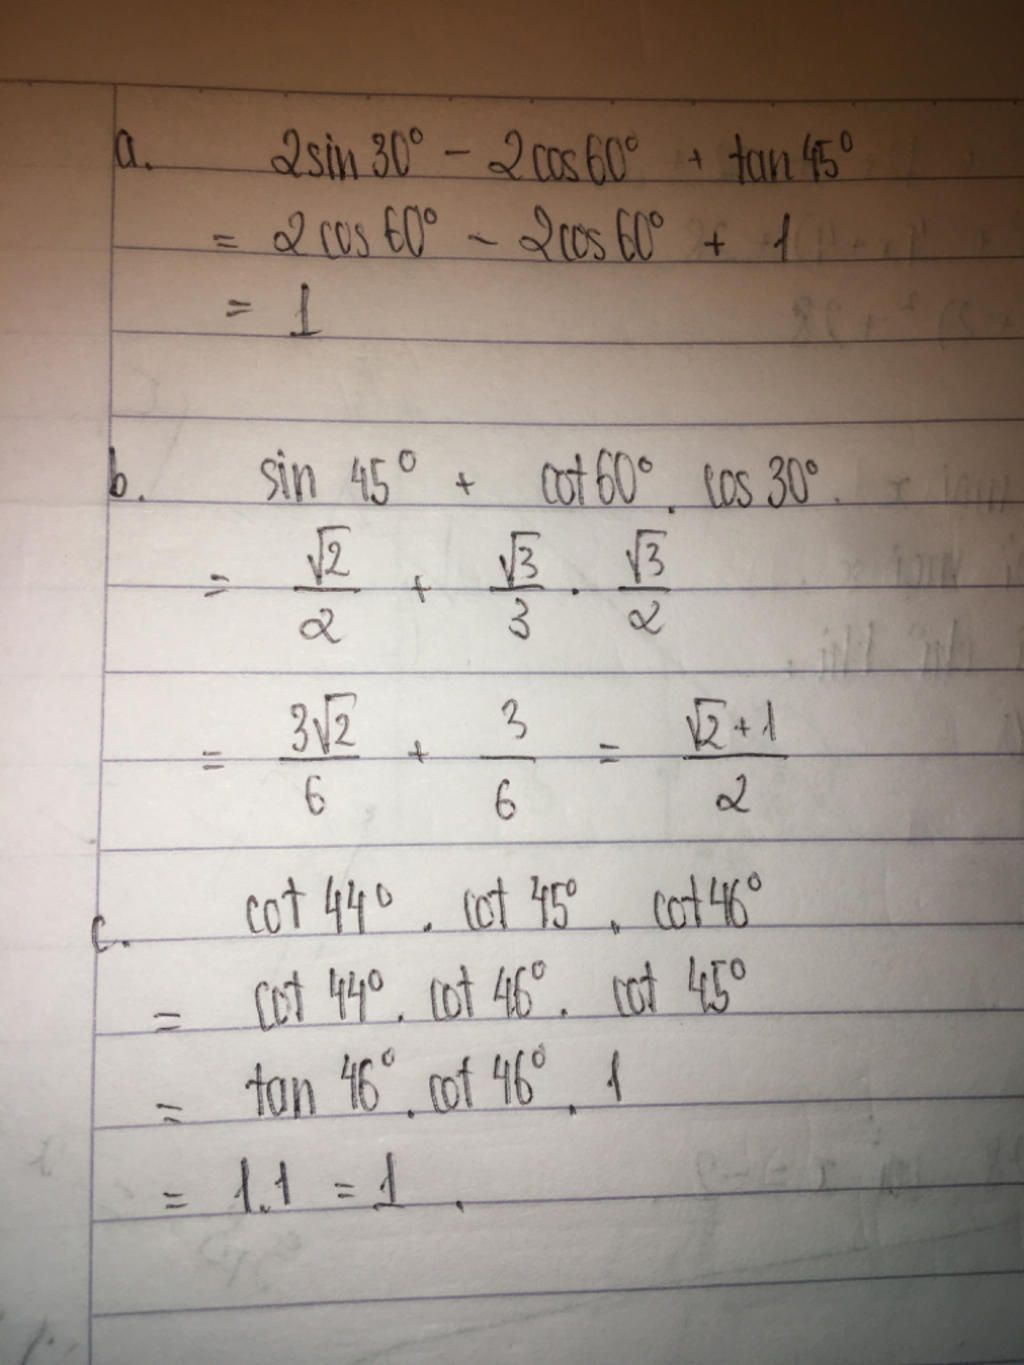 a. 2sin30° - 2cos60° + tan45°
= 2cos60° - 2cos60° + 1
= 1
b. sin 45° + cot60° . cos30°.
= √2/2 + √3/3 . √3/2
= 3√2/6 + 3/6 = (√2+1)/2
c. cot 44° . cot 45° . cot46°
= cot 44° . cot 46° . cot 45°
= tan 46° . cot 46° . 1
= 1.1 = 1 .